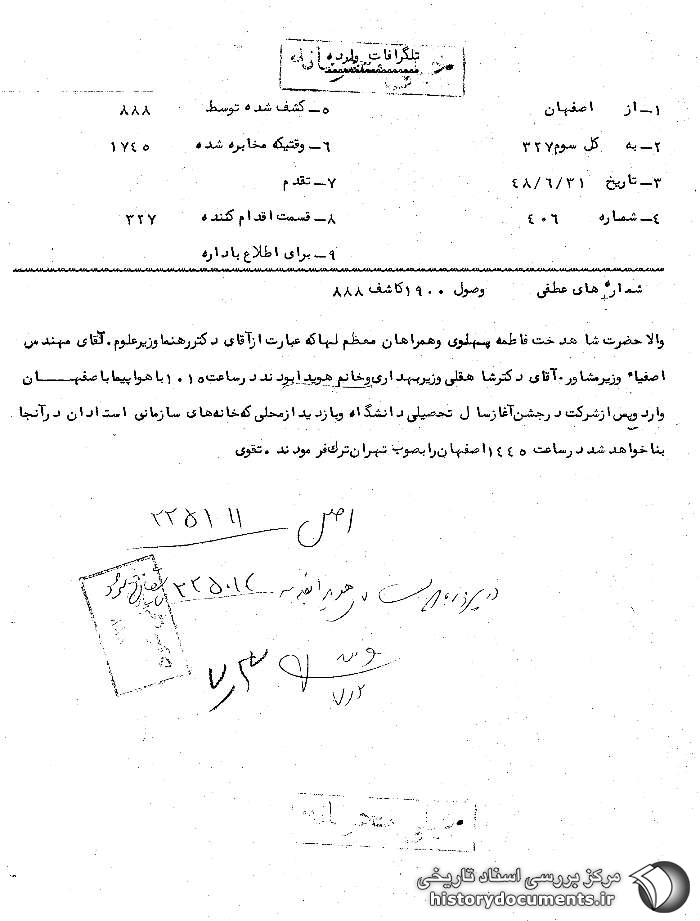 تلگرافات وارده
۱ــ از اصفهان
۲ــ به کل سوم ۳۲۷
۳ــ تاریخ ۴۸/۶/۳۱
۴ــ شماره ۴۰۶
۵ــ کشف شده توسط ۸۸۸
۶ــ وقتیکه مخابره شده ۱۷۴۵
۷ــ تقدم
۸ــ قسمت اقدام کننده ۳۲۷
۹ــ برای اطلاع باداره
شماره های عطفی وصول ۱۹۰۰ کاشف ۸۸۸
والاحضرت شاهدخت فاطمه پهلوی وهمراهان معظم لها که عبارت ازآقای دکتررهنما وزیرعلوم. آقای مهندس
اصفیاء وزیرمشاور. آقای دکترشاهقلی وزیربهداری وخانم هویدا بودند درساعت ۱۰۱۵ باهواپیما باصفهان
وارد وپس ازشرکت درجشن آغازسال تحصیلی دانشگاه وبازدید ازمحلی که خانه های سازمانی استادان درآنجا
بنا خواهد شد درساعت ۱۴۴۵ اصفهان را بصوب تهران ترک فرمودند. تقوی
اصل ۲۲۵۱۱۱
هویدا ۲۲۵۰۱۲
۷/۲
۷/۳
خیلی محرمانه
مرکز بررسی اسناد تاریخی
historydocuments.ir